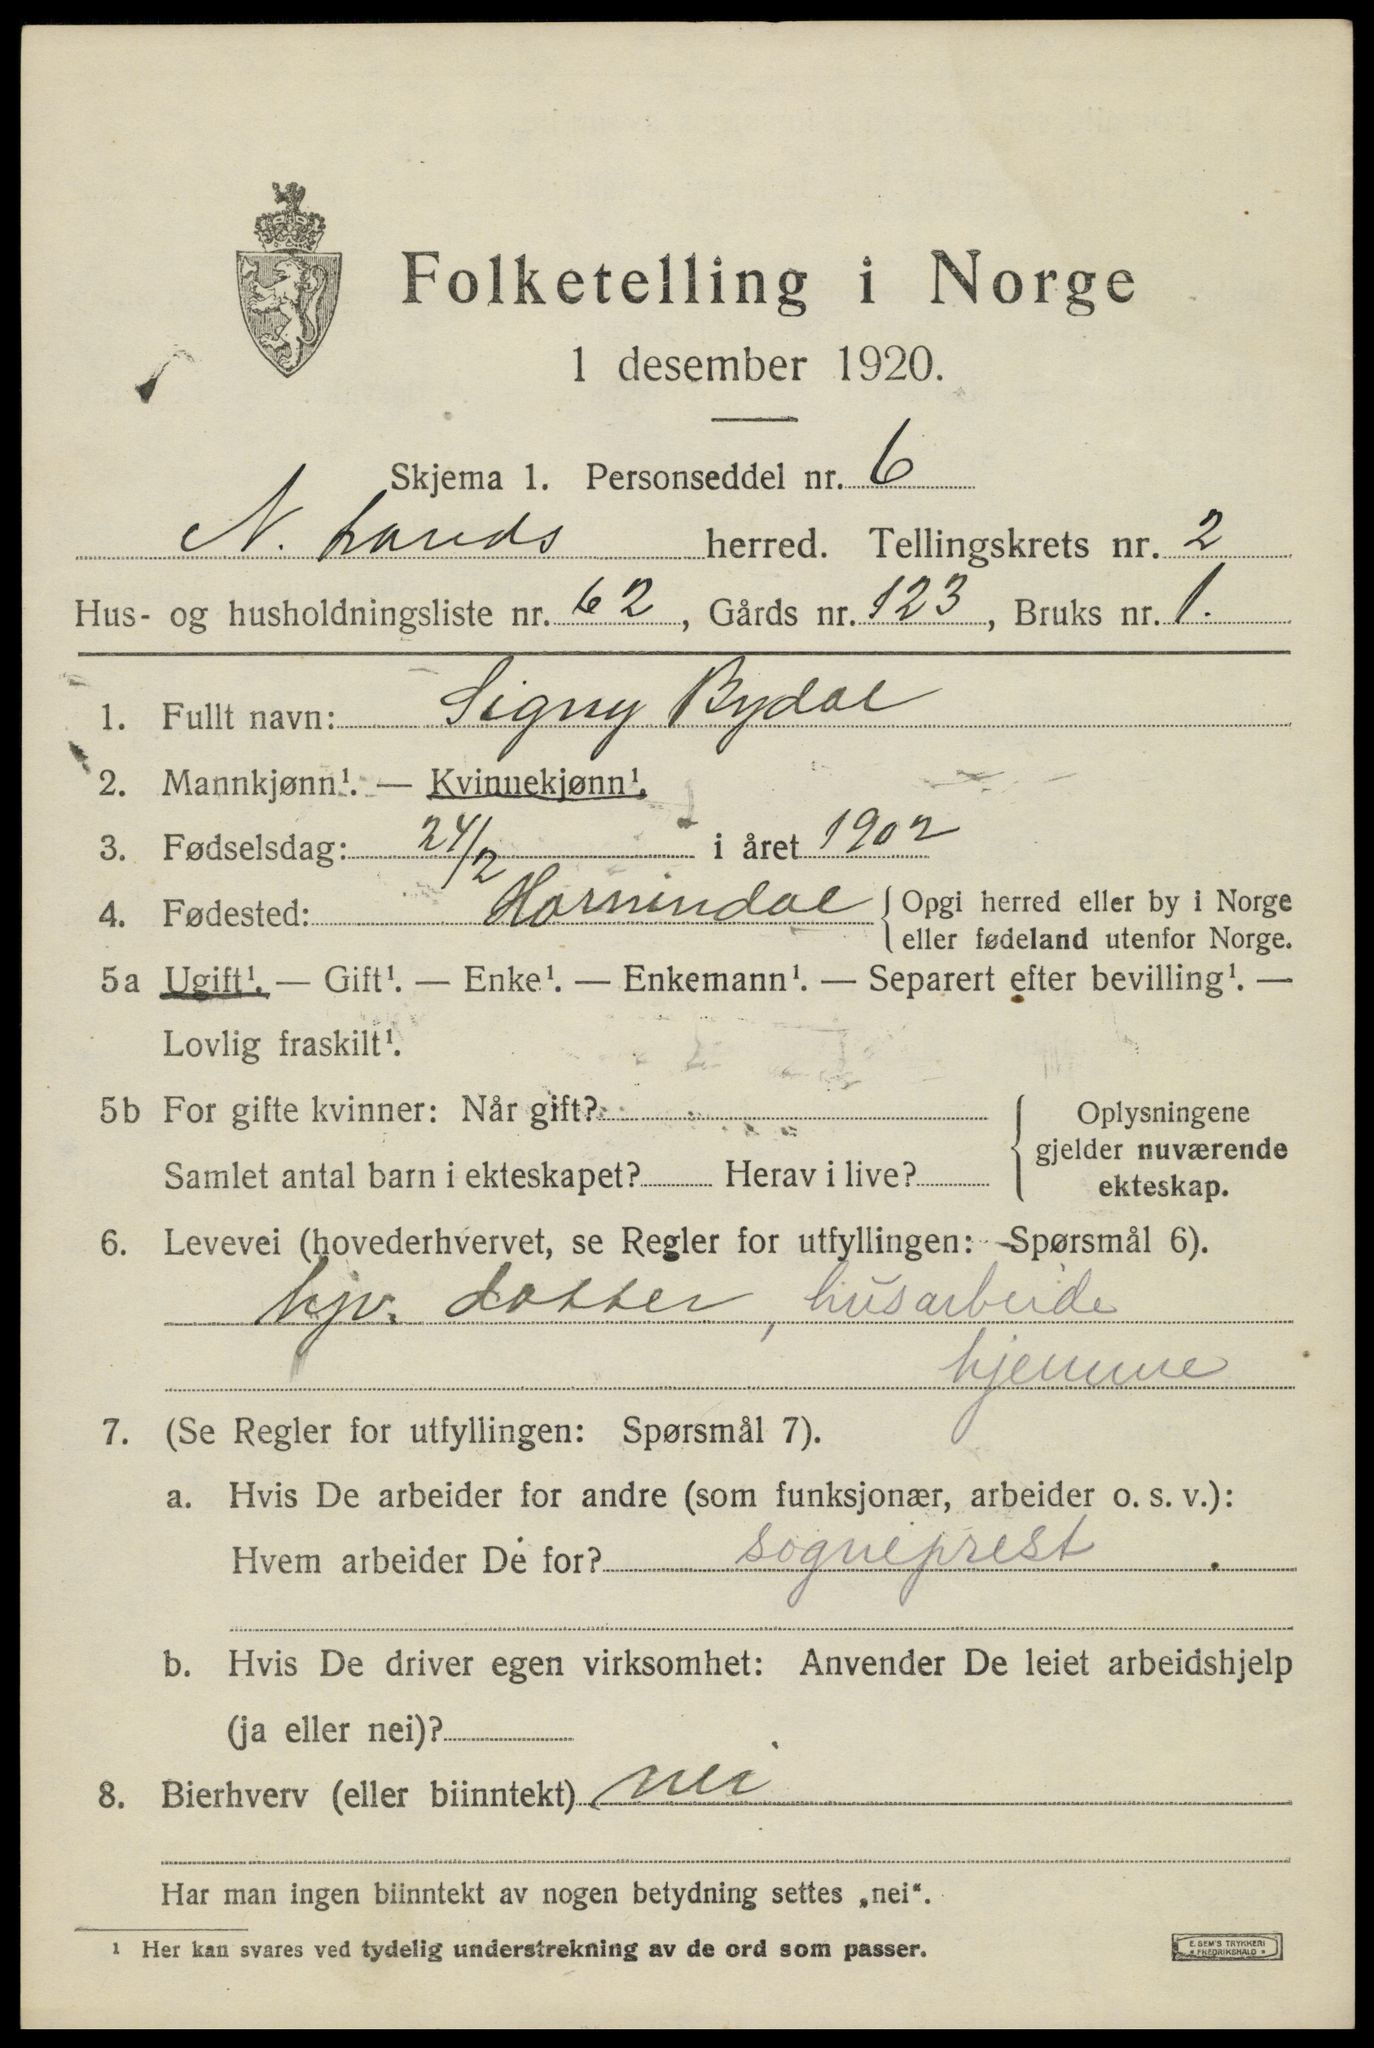 Folketelling i Norge
1 desember 1920.
Skjema 1. Personseddel nr. 6
N. Lands herred. Tellingskrets nr. 2
Hus- og husholdningsliste nr. 62, Gårds nr. 123, Bruks nr. 1.
1. Fullt navn: Signy Bydal
2. Mannkjønn¹. — Kvinnekjønn¹.
3. Fødselsdag: 24/2 i året 1902
4. Fødested: Hornindal { Opgi herred eller by i Norge
eller fødeland utenfor Norge.
5a Ugift¹. — Gift¹. — Enke¹. — Enkemann¹. — Separert efter bevilling¹. —
Lovlig fraskilt¹.
5b For gifte kvinner: Når gift? { Oplysningene
gjelder nuværende
Samlet antal barn i ekteskapet? Herav i live? ekteskap.
6. Levevei (hovederhvervet, se Regler for utfyllingen: Spørsmål 6).
hjv. datter, husarbeide
hjemme
7. (Se Regler for utfyllingen: Spørsmål 7).
a. Hvis De arbeider for andre (som funksjonær, arbeider o. s. v.):
Hvem arbeider De for? sogneprest
b. Hvis De driver egen virksomhet: Anvender De leiet arbeidshjelp
(ja eller nei)?
8. Bierhverv (eller biinntekt) nei
Har man ingen biinntekt av nogen betydning settes „nei“.
¹ Her kan svares ved tydelig understrekning av de ord som passer.
E. SEM'S TRYKKERI
* FREDRIKSHALD *